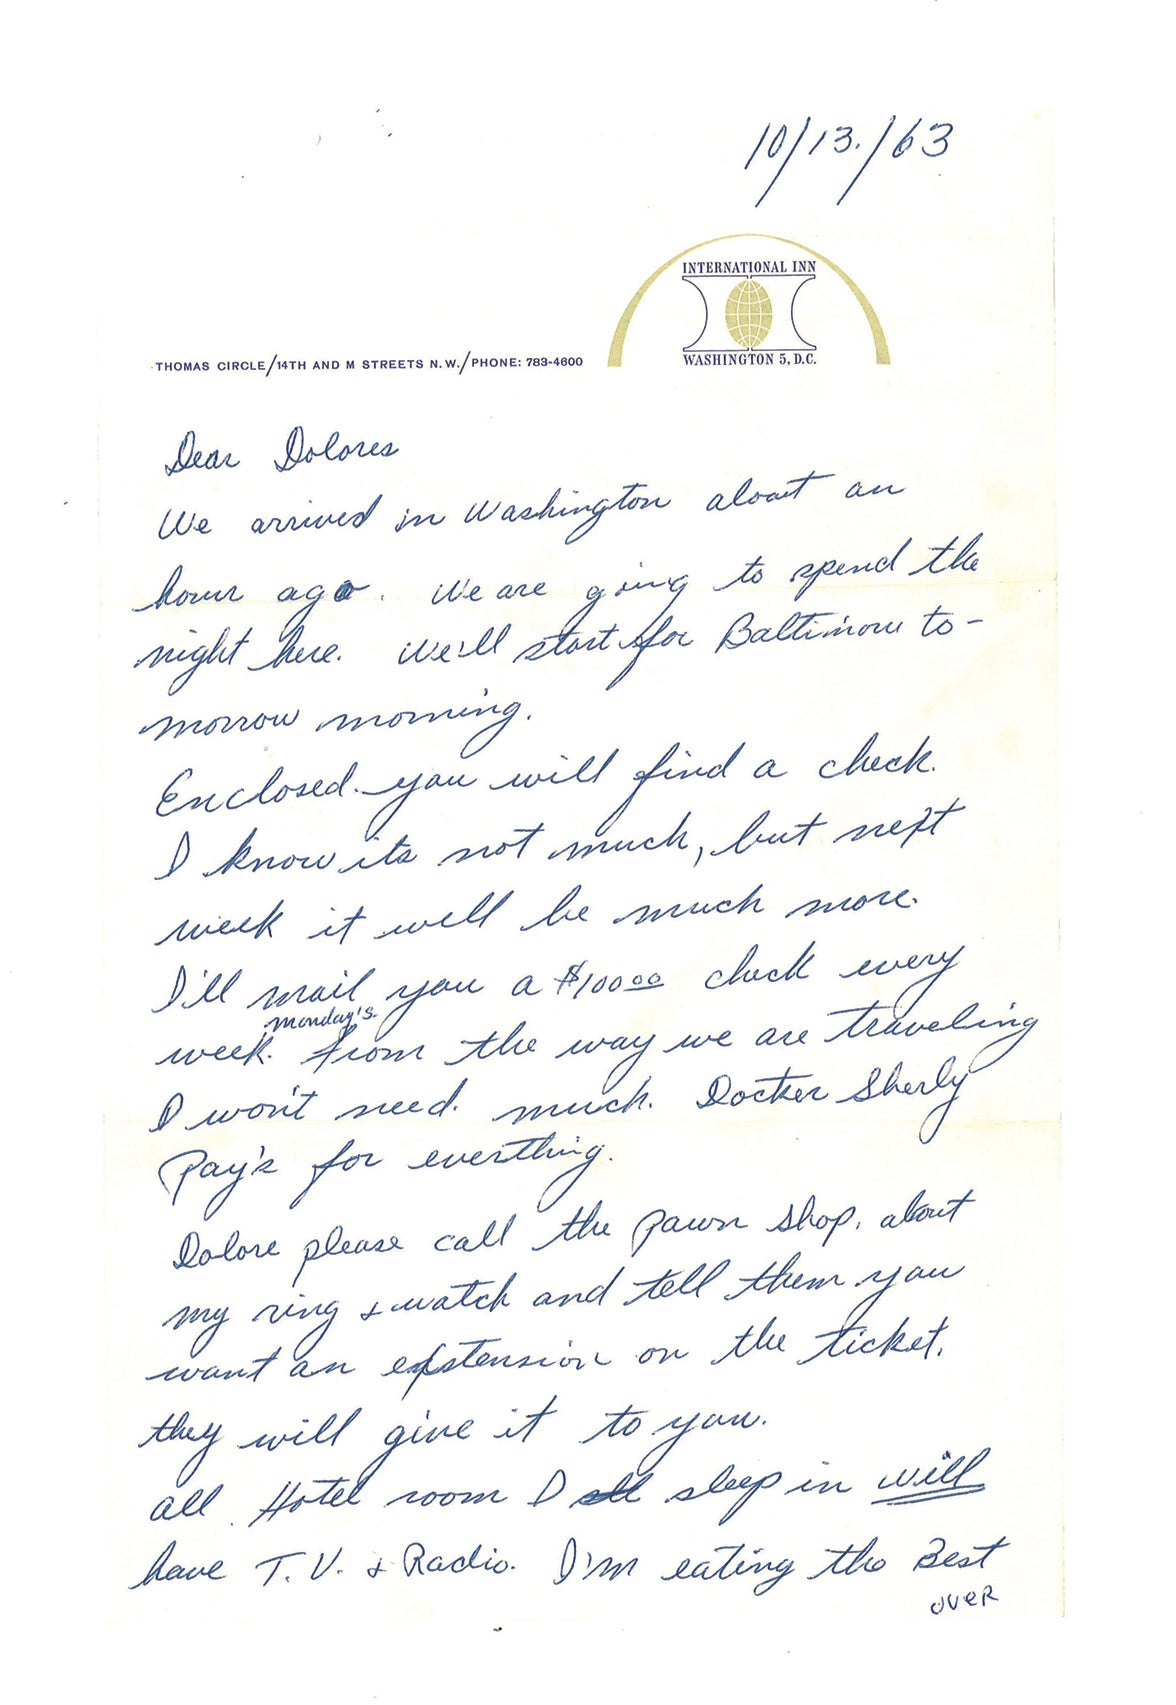 10/13./63
INTERNATIONAL INN
WASHINGTON 5, D.C.
THOMAS CIRCLE/14TH AND M STREETS N.W./PHONE: 783-4600
Dear Dolores
We arrived in Washington about an
hour ago. We are going to spend the
night here. We'll start for Baltimore to-
morrow morning.
Enclosed you will find a check.
I know its not much, but next
week it will be much more.
I'll mail you a $100.00 check every
monday's.
week. From the way we are traveling
I won't need much. Docter Sherly
Pay's for everthing.
Dolore please call the pawn shop, about
my ring & watch and tell them you
want an extension on the ticket.
they will give it to you.
all Hotel room I sleep in will
have T.V. & Radio. I'm eating the Best
OVER